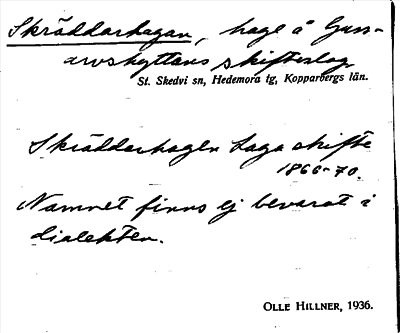 Skräddarhagan, hage å Guss-
arvshyttans skifteslag
St. Skedvi sn, Hedemora tg, Kopparbergs län.
Skräddarhagen Laga skifte
1866-70.
Namnet finns ej bevarat i
dialekten.
OLLE HILLNER, 1936.